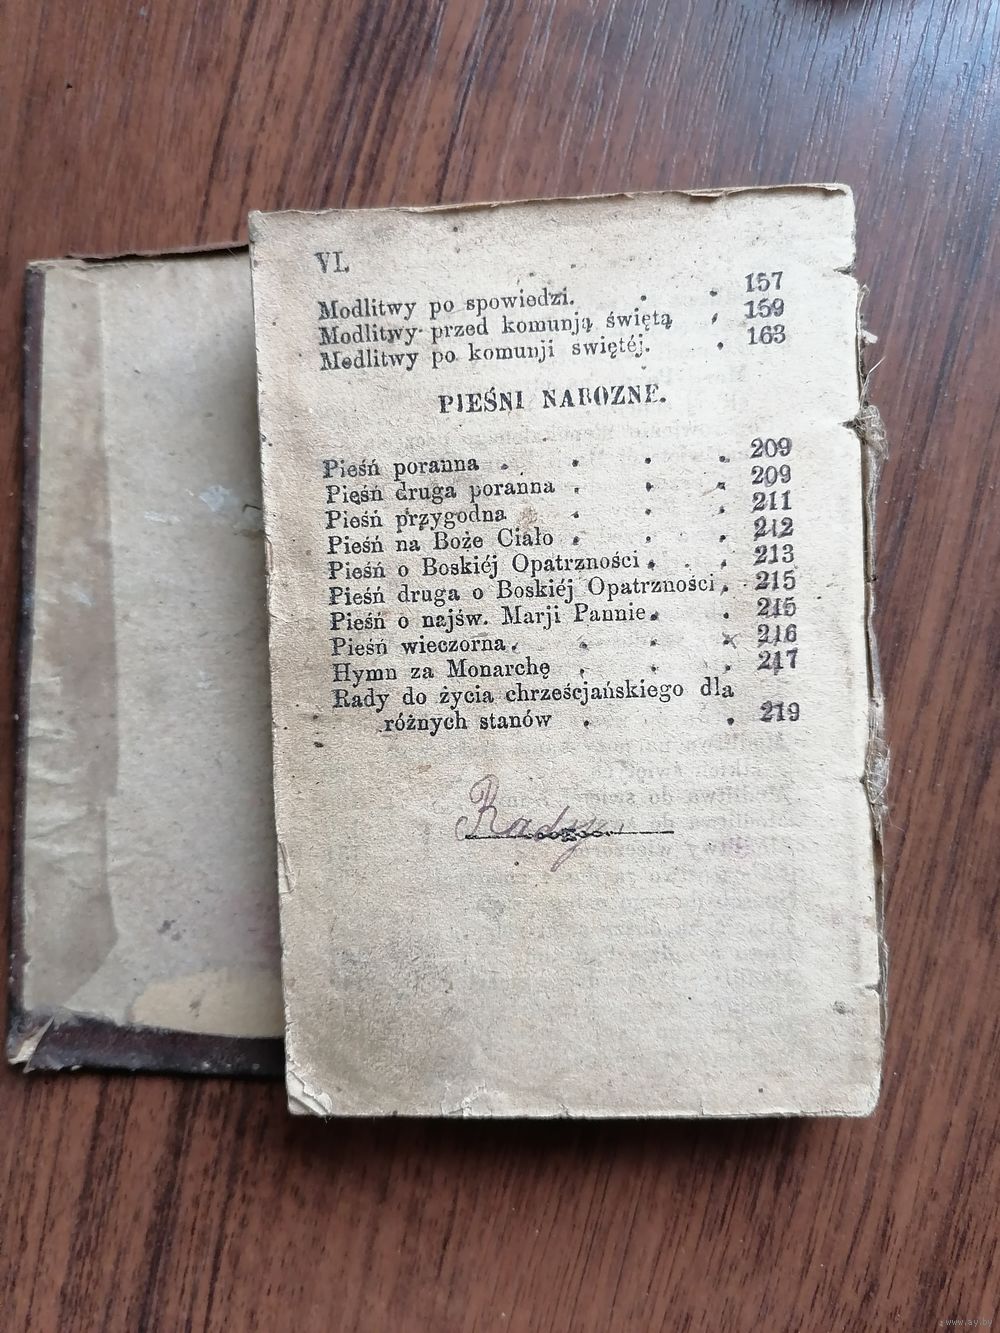 VI.
Modlitwy po spowiedzi. . . 157
Modlitwy przed komunją świętą . 159
Modlitwy po komunji świętéj. . 163
PIEŚNI NABOZNE.
Pieśń poranna . . . . 209
Pieśń druga poranna . . . 209
Pieśń przygodna . . . 211
Pieśń na Boże Ciało . . . 212
Pieśń o Boskiéj Opatrzności . . . 213
Pieśń druga o Boskiéj Opatrzności . 215
Pieśń o najśw. Marji Pannie . . 215
Pieśń wieczorna . . . 216
Hymn za Monarchę . . . 217
Rady do życia chrześcjańskiego dla
różnych stanów . . 219
www.ay.by